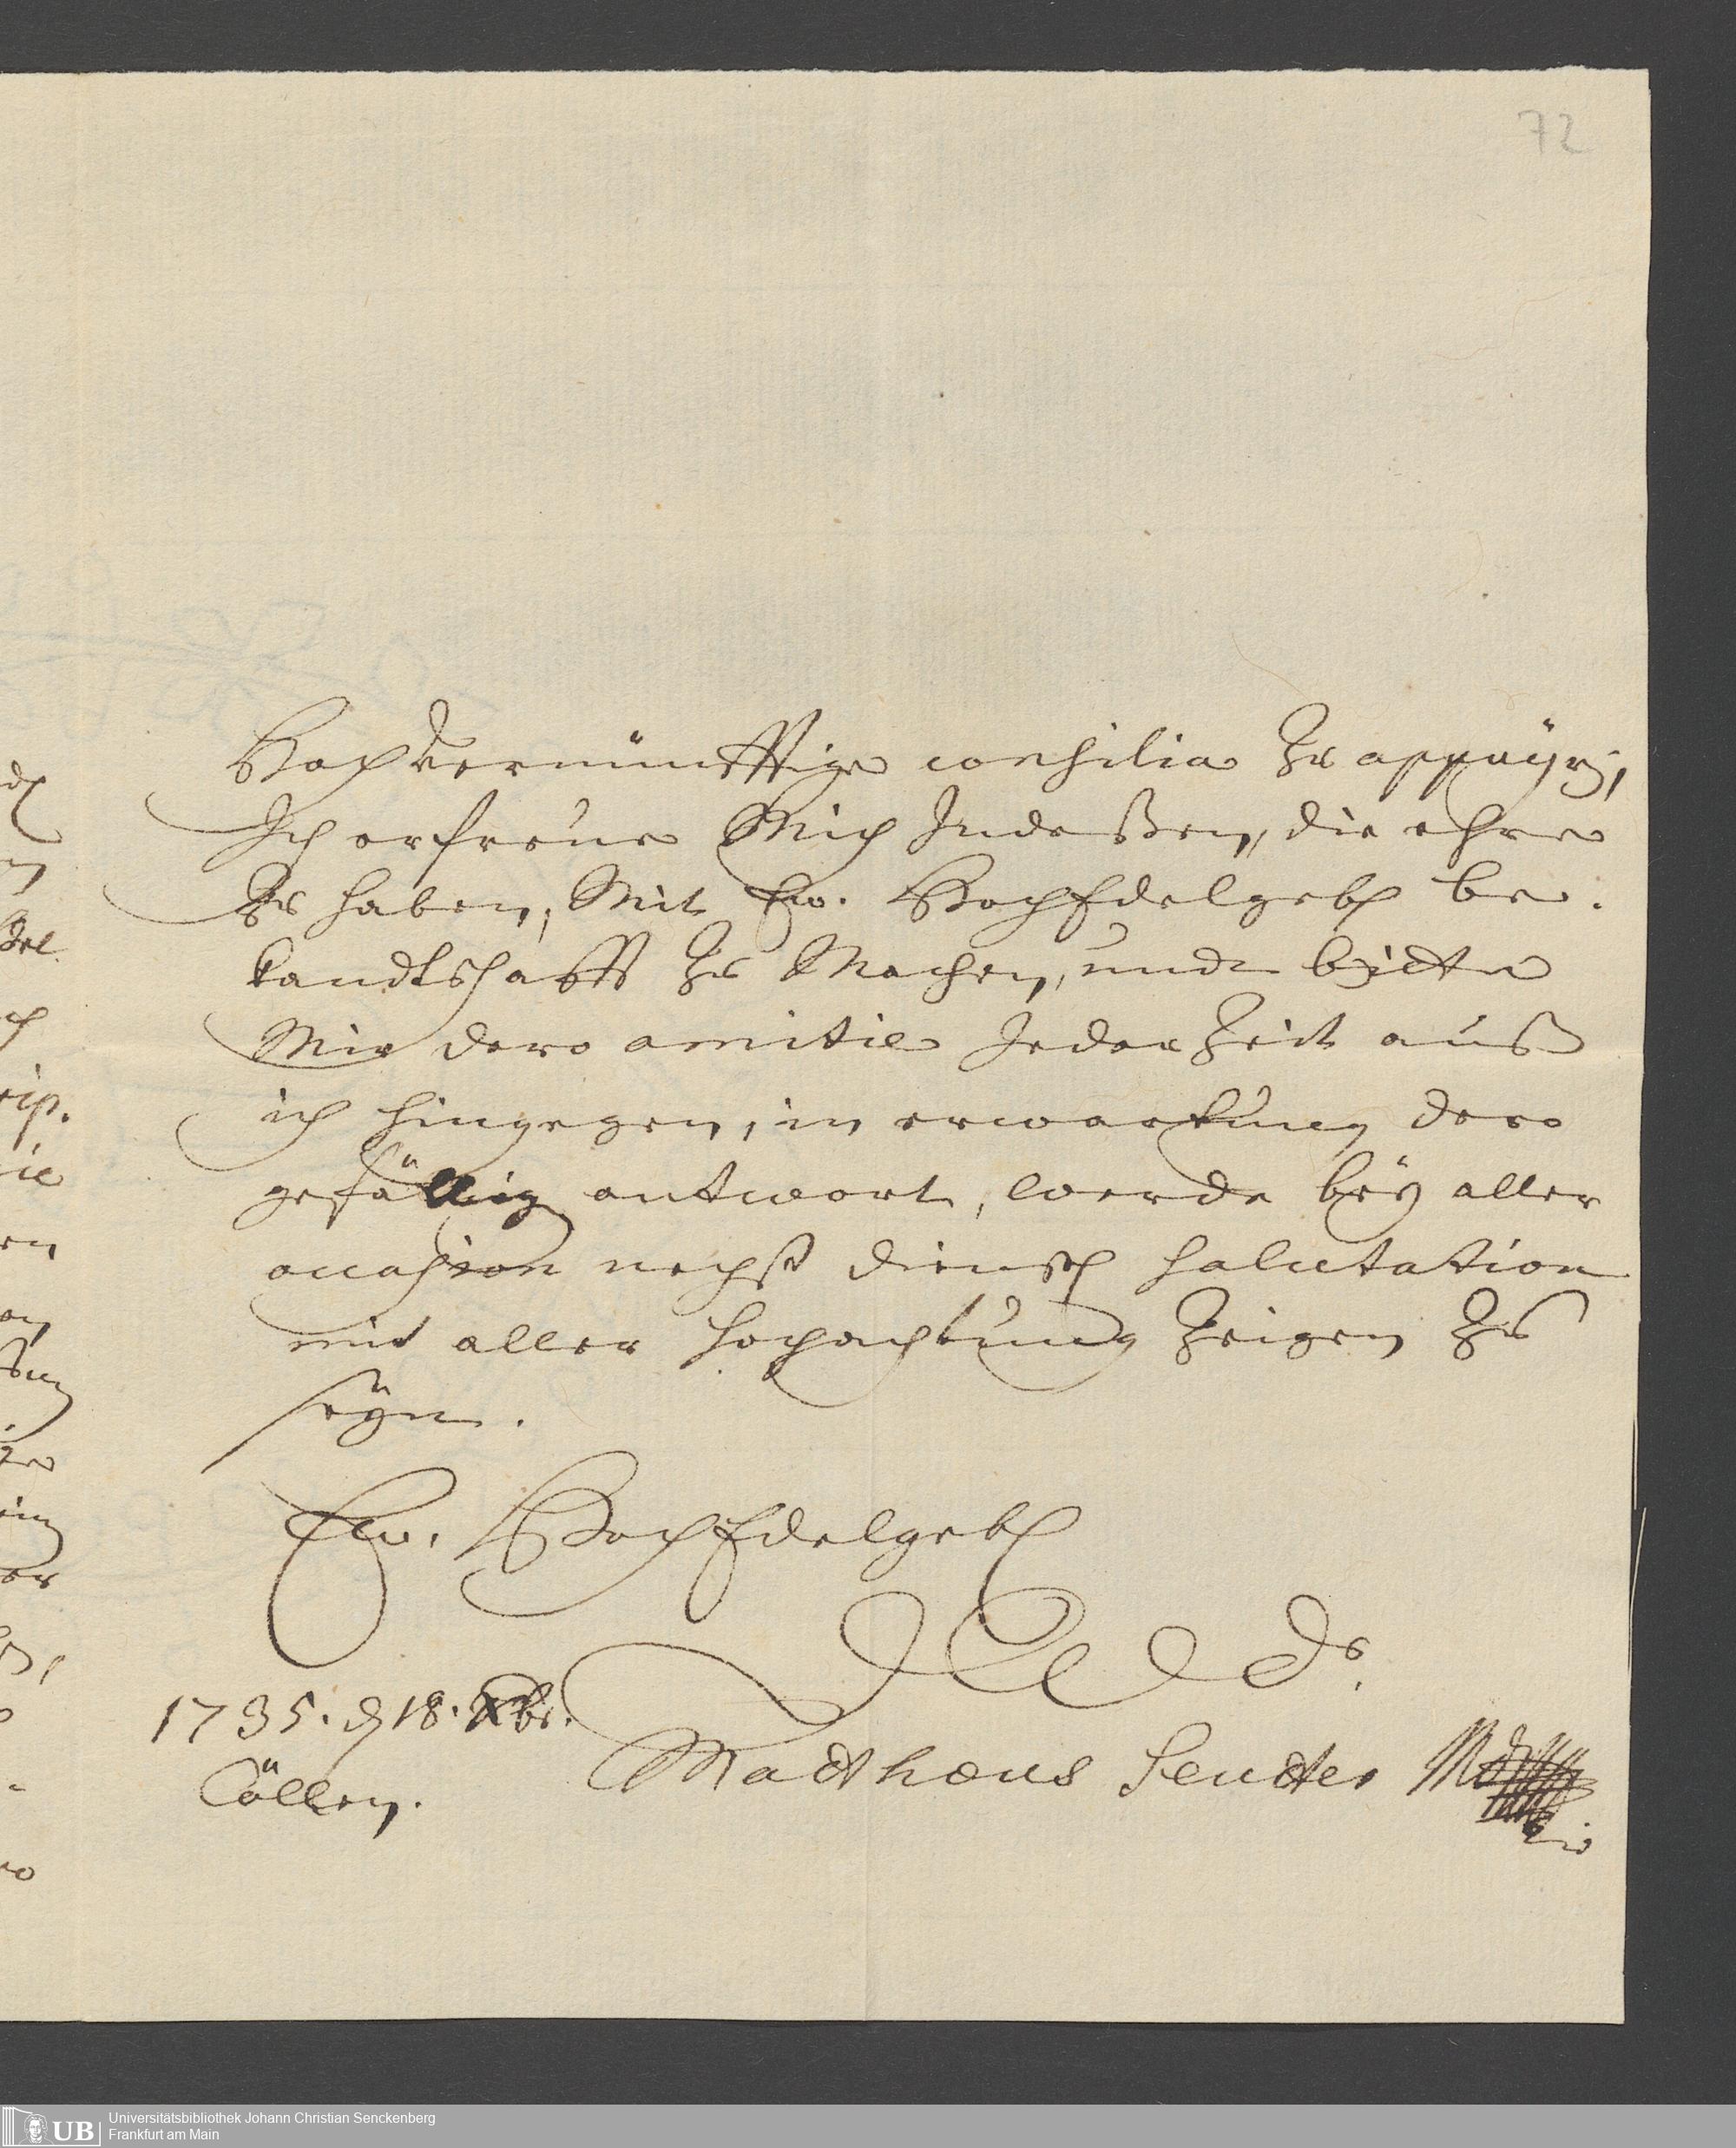 72
Hochvernünfftige consilia zu appuÿrn,
Ich erfreüe Mich Indeßen, die ehre
Zu haben, Mit Ew. HochEdelgeb be.
kandtschafft zu Machen, undt bitte
Mir dero amitie Jederzeit auß
ich hingegen, in erwartung dero
gefällig antwort, werde beÿ aller
occasion nechst dienstl salutation
mit aller hochachtung zeigen zu
seÿn.
Ew. HochEdelgeb
1735. d 18. Xbr.
Cöllen.
Matthæus Sentter
UB Universitätsbibliothek Johann Christian Senckenberg
Frankfurt am Main